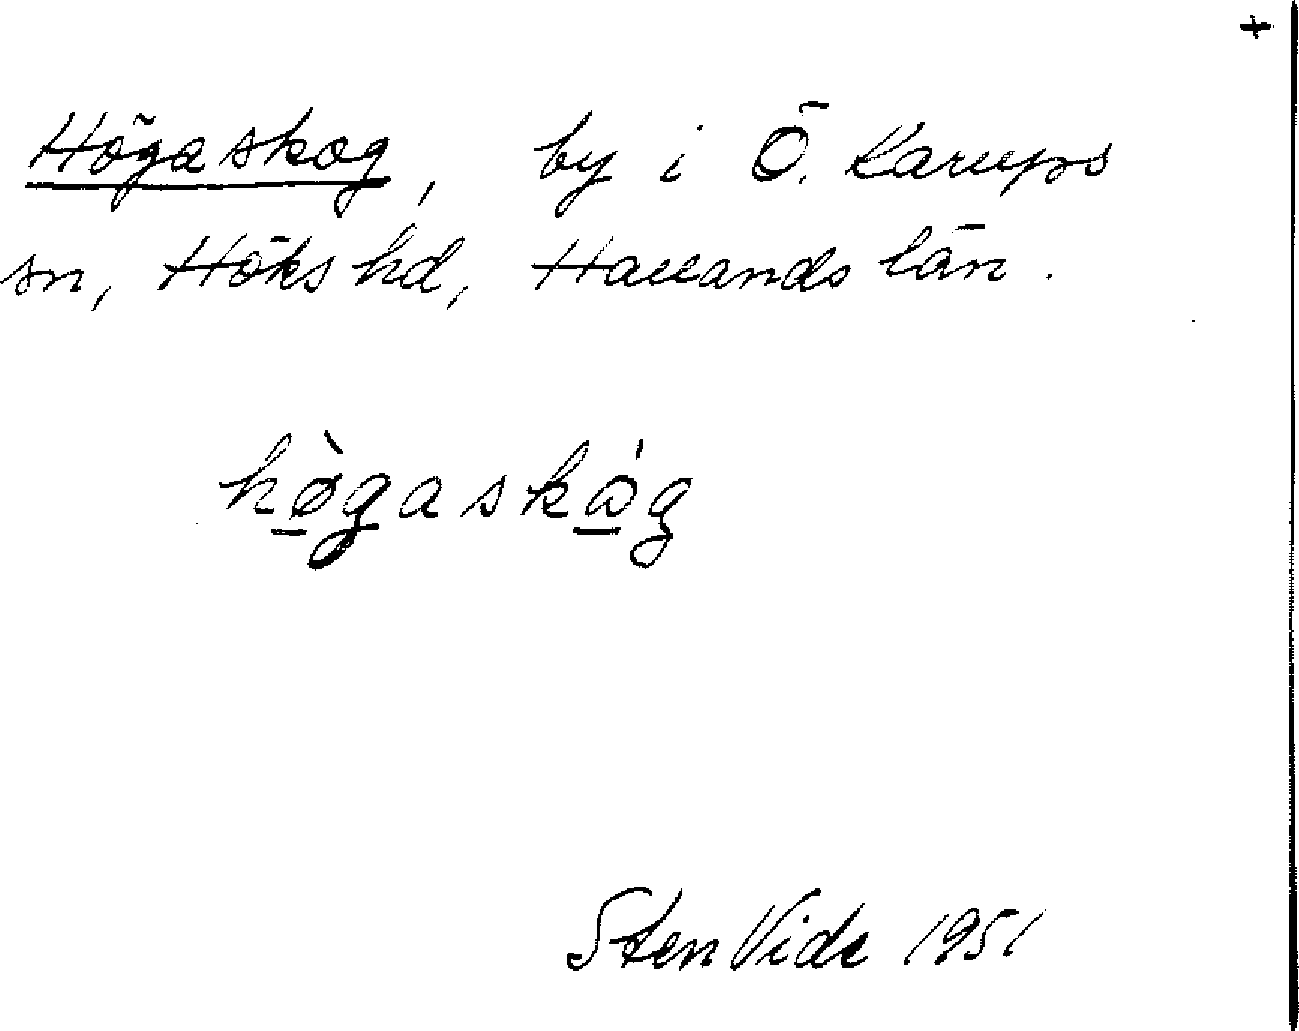 +
Högaskog, by i Ö. Karups
sn, Höks hd, Hallands län.
hø̀gaskǻg
Sten Vide 1951